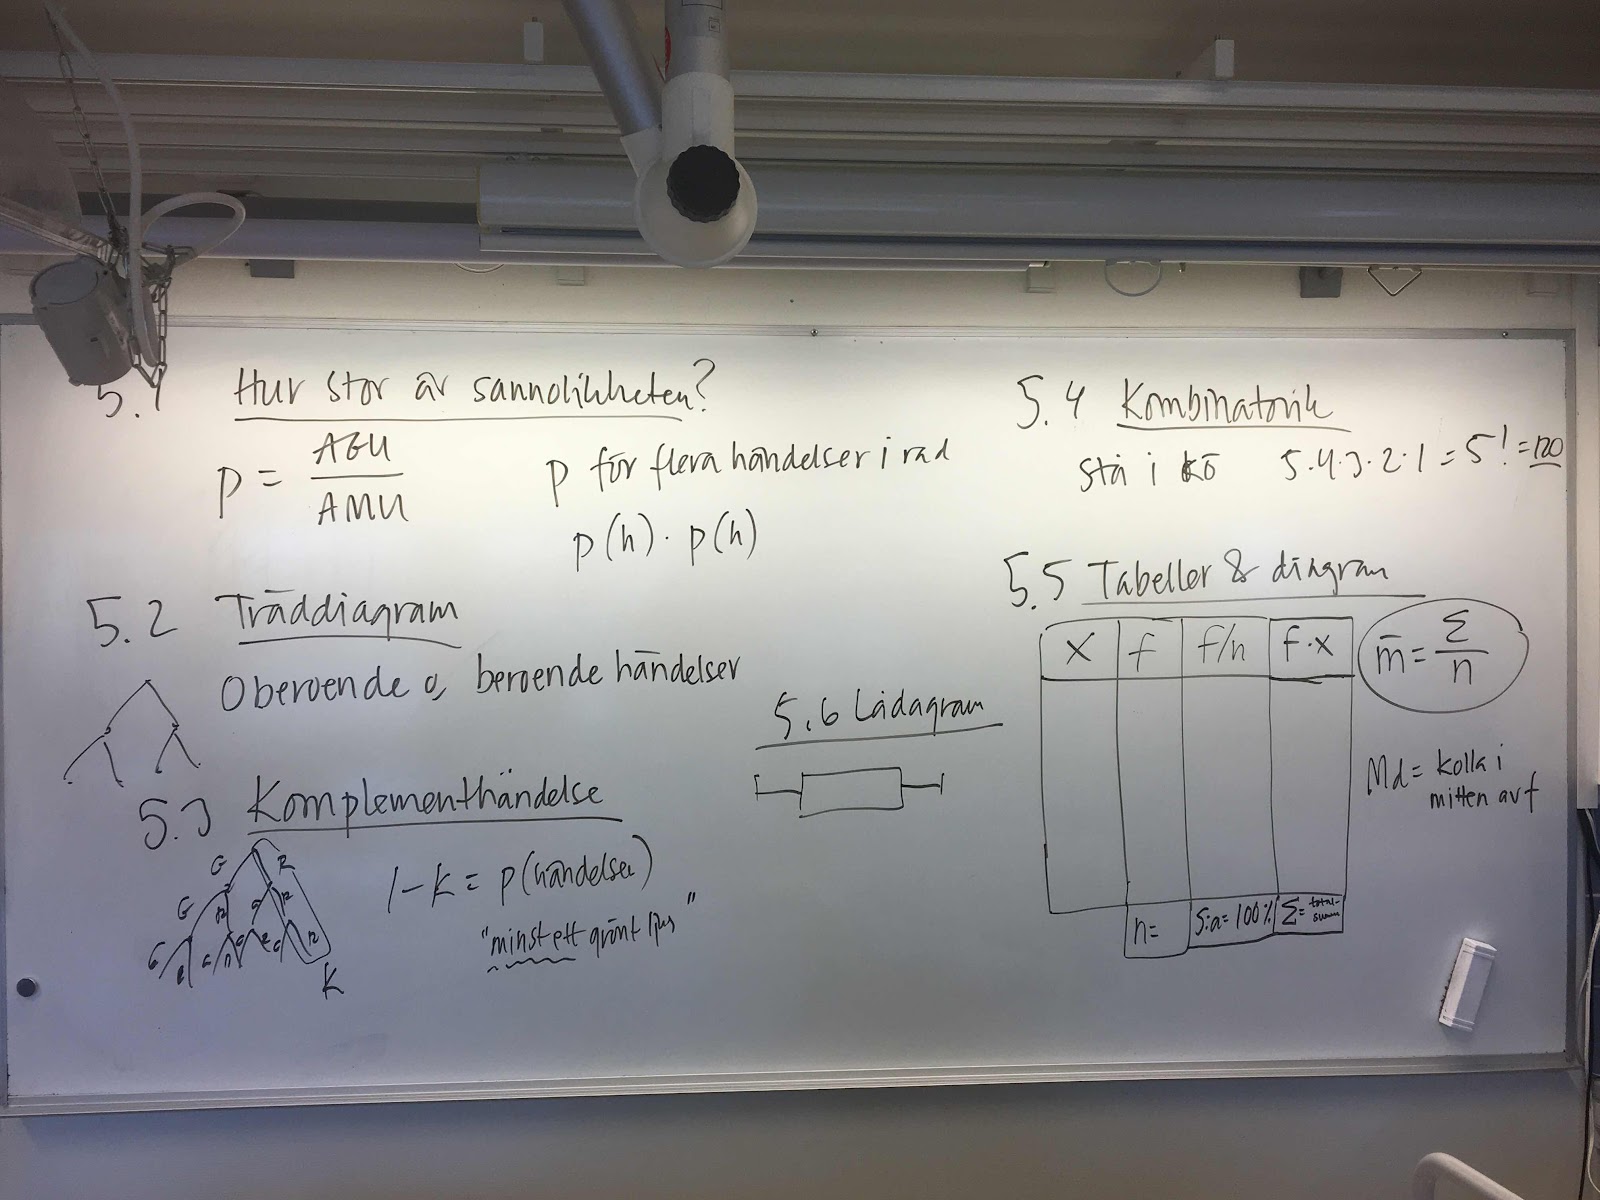 5.1 Hur stor är sannolikheten?
p = AGU / AMU
p för flera händelser i rad
p(h) · p(h)
5.2 Träddiagram
Oberoende o, beroende händelser
5.3 Komplementhändelse
G R
G R G R
G R G R G R G R
K
1-K = p(händelse)
"minst ett grönt ljus"
5.4 Kombinatorik
stå i kö 5·4·3·2·1 = 5! = 120
5.5 Tabeller & diagram
x f f/n f·x
n= S:a=100% Σ= total-
summa
m̄ = Σ / n
Md = kolla i
mitten av f
5.6 Lådagram